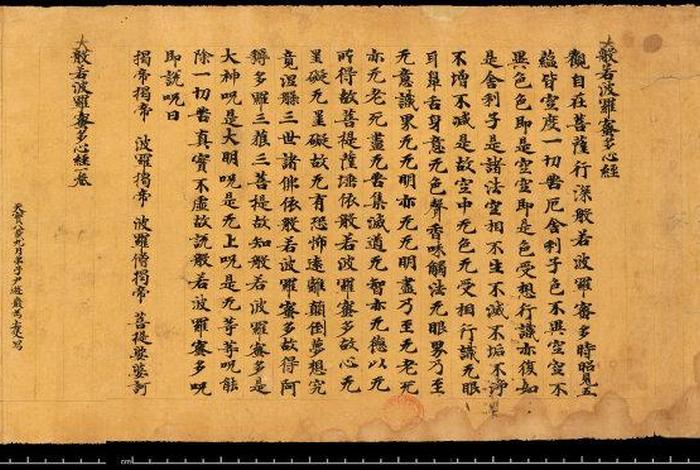 大般若波羅蜜多心經
觀自在菩薩行深般若波羅蜜多時照見五
蘊皆空度一切苦厄舍利子色不異空空不
異色色即是空空即是色受想行識亦復如
是舍利子是諸法空相不生不滅不垢不淨
不增不減是故空中无色无受相行識无眼
耳鼻舌身意无色聲香味觸法无眼界乃至
无意識界无无明亦无无明盡乃至无老死
亦无老死盡无苦集滅道无智亦无德以无
所得故菩提薩埵依般若波羅蜜多故心无
罣礙无罣礙故无有恐怖遠離顛倒夢想究
竟涅槃三世諸佛依般若波羅蜜多故得阿
耨多羅三藐三菩提故知般若波羅蜜多是
大神呪是大明呪是无上呪是无等等呪能
除一切苦真實不虛故說般若波羅蜜多呪
即說呪曰
揭帝揭帝 波羅揭帝 波羅僧揭帝 菩提娑婆訶
大般若波羅蜜多心經一卷
九月弟子尹
cm